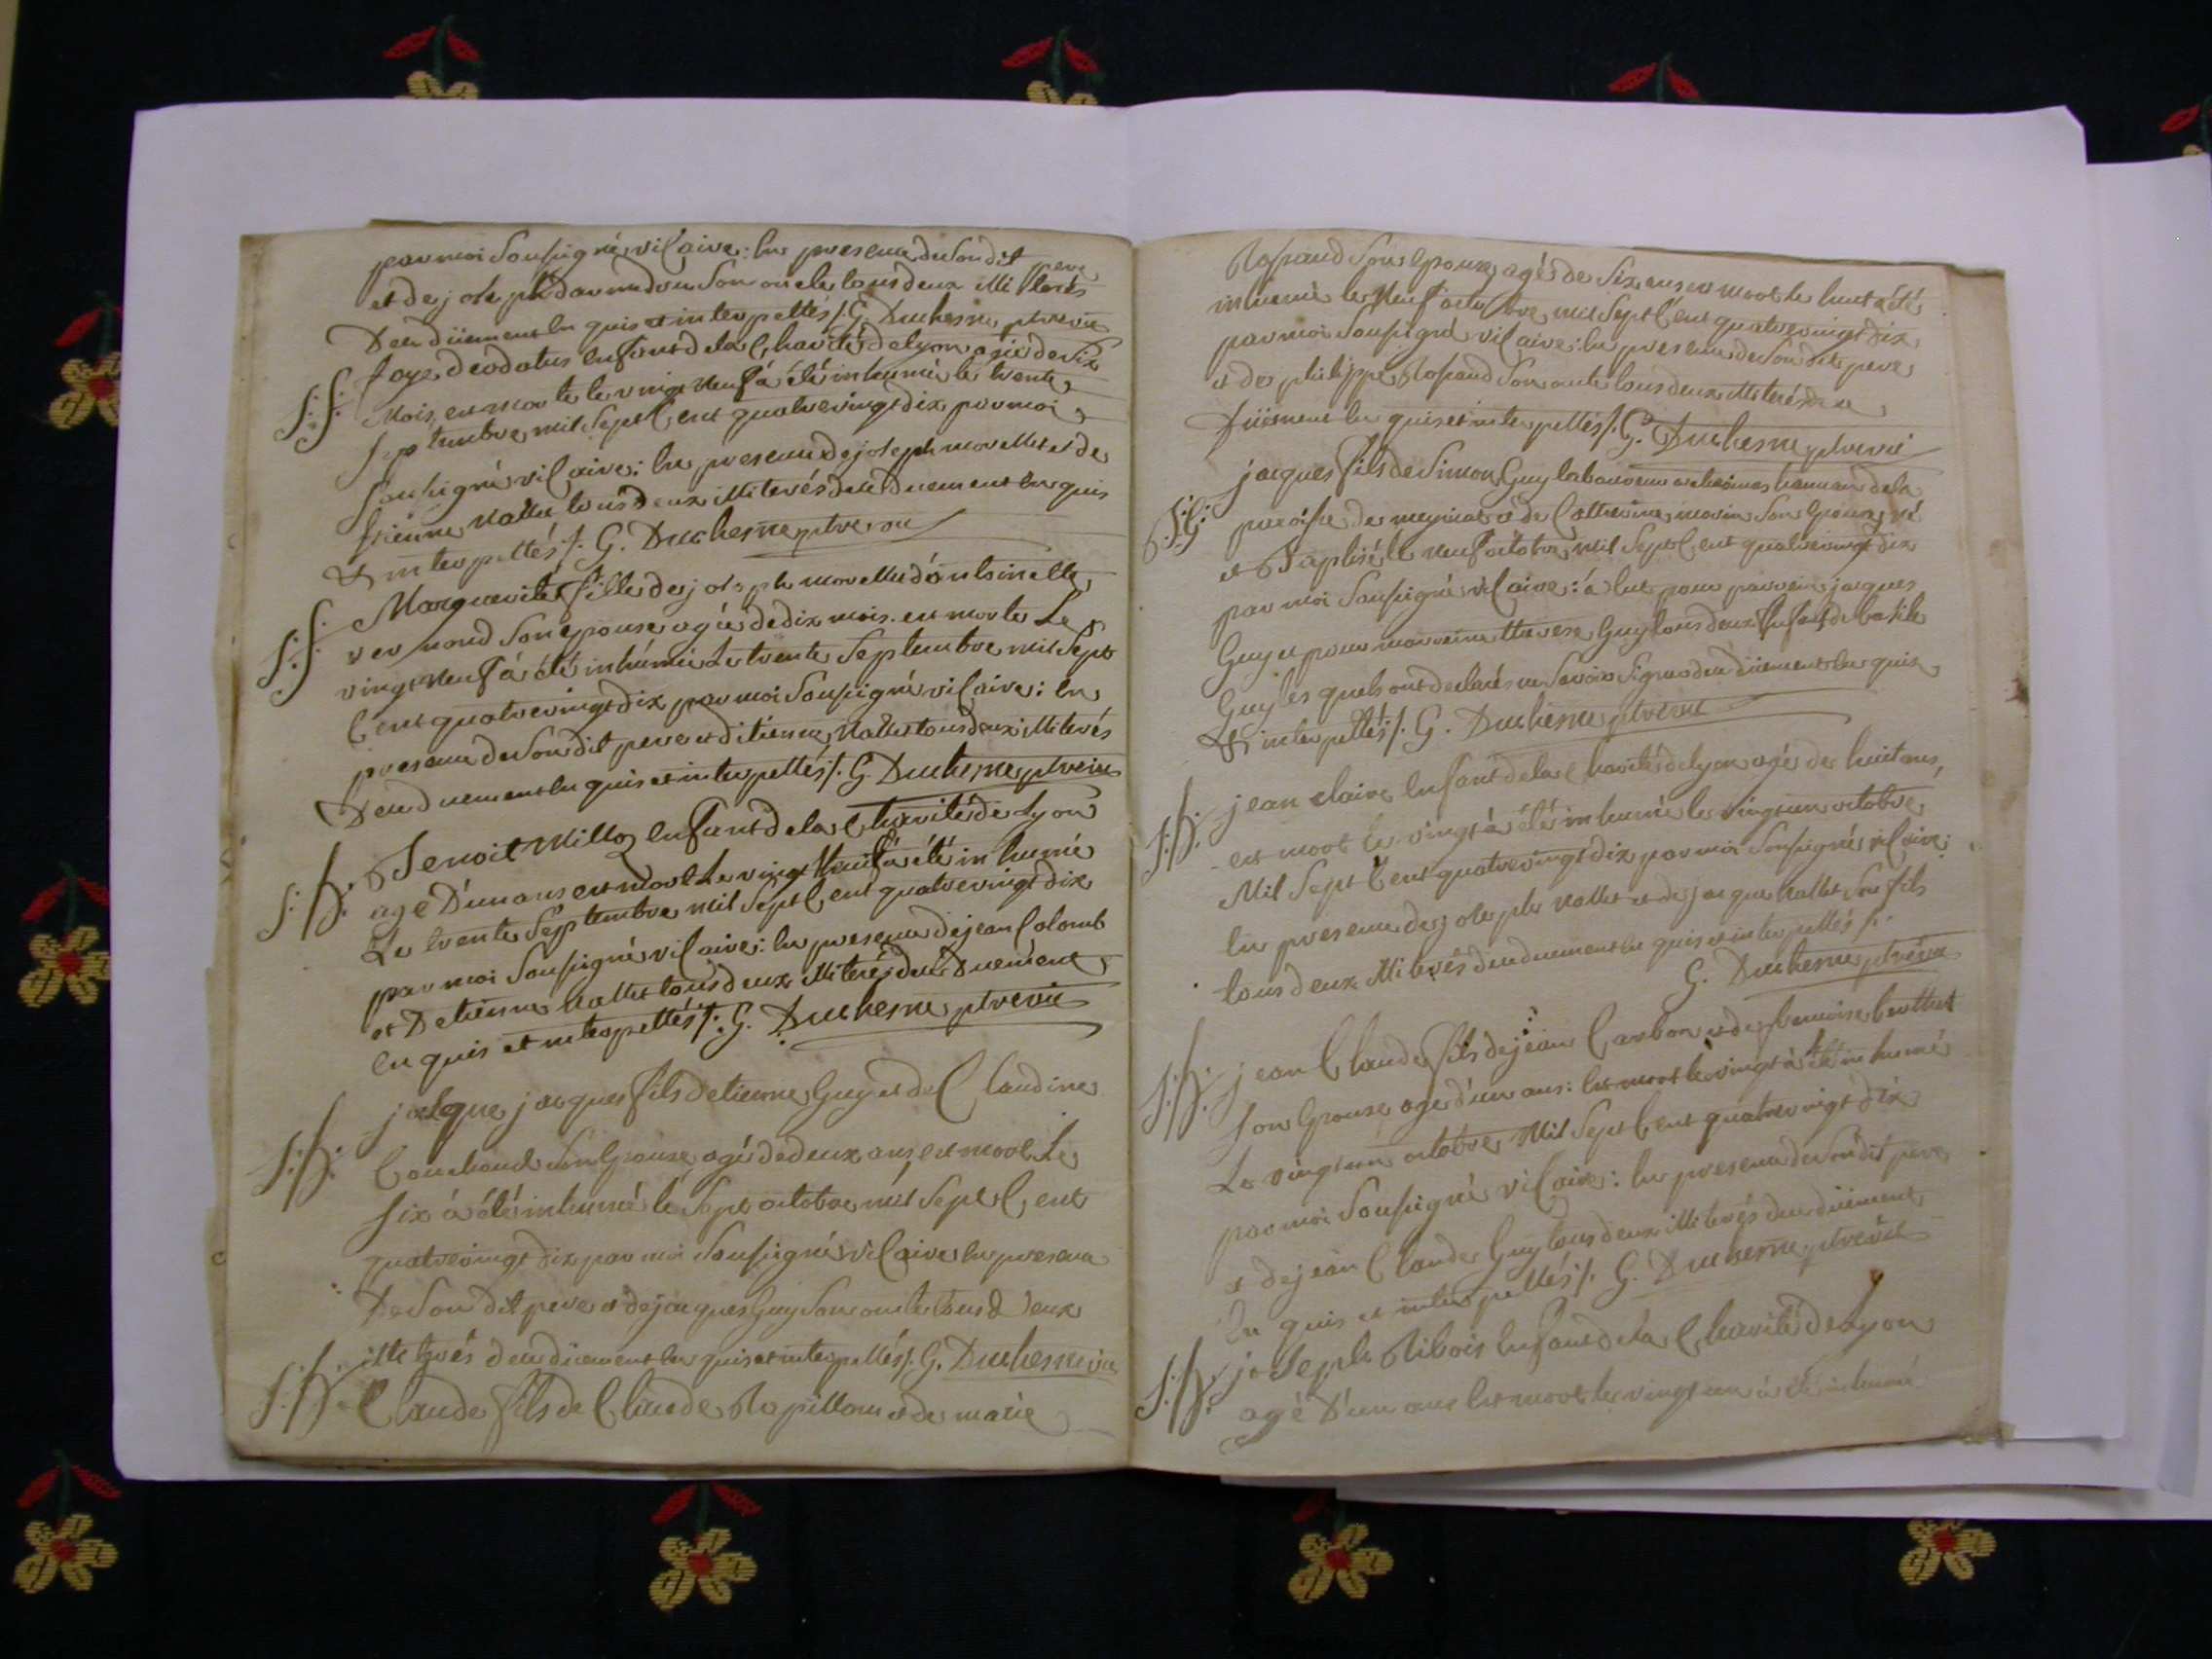 par moi soussigné vicaire: en presence de son dit pere
et de joseph son oncle tous deux illiterés
de ce duement en quis et interpellés /. G. Duchesne ptre vic
S:f: Joye deodatus enfant de la Charité de lyon agée de six
mois, est morte le vingt neuf á été inhumée le trente
septembre mil sept Cent quatrevingt dix par moi
soussigné vicaire: en presence de joseph morellet et de
etienne Mallet tous deux illiterés de ce duement en quis
& interpellés /. G. Duchesne ptre vic
S:f: Marguerite fille de joseph morellet d'antoinette
son epouse agée de dix mois. est morte Le
vingt neuf á été inhumée Le trente Septembre mil Sept
Cent quatrevingt dix par moi Soussigné vicaire: en
presence de Son dit pere et d'etienne Mallet tous deux illiterés
De ce duement en quis et interpellés /. G. Duchesne ptre vic
S: h: Benoit Millon enfant de la Charité de Lyon
agé D'un ans est mort Le vingt Neuf á été inhumé
Le trente Septembre mil Sept Cent quatrevingt dix
par moi Soussigné vicaire: en presence de jean Colomb
et D'etienne Mallet tous deux illiterés de ce Duement
en quis et interpellés /: G. Duchesne ptre vic
S: h: jacques fils d'etienne Guy et de Claudine
Couchoud Son Epouse agé de deux ans, est mort Le
Six á été inhumé le Sept octobre mil Sept Cent
quatrevingt dix par moi Soussigné vicaire en presence
De Son dit pere et de jacques Guy Son oncle tous deux
illiterés de ce duement en quis et interpellés /. G. Duchesne vic
S: h: Claude fils de Claude Rapillon et de marie
Son Epouse, agé de Six ans est mort le huit a été
inhumé le Neuf octobre mil Sept Cent quatrevingt dix
par moi Soussigné vicaire: en presence de Son dit pere
et de philippe Son oncle tous deux illiterés de ce
Duement en quis et interpellés /. G. Duchesne ptre vic
jacques fils de Simon Guy laboureur de la
paroisse de meyriat et de Catherine morin Son Epouse, né
et Baptisé le neuf octobre mil Sept Cent quatrevingt dix
par moi Soussigné vicaire: á eut pour parrein jacques
Guy et pour marreine therese Guy tous deux Enfans de basile
Guy les quels ont declarés ne Savoir Signer de ce duement en quis
& interpellés /. G. Duchesne ptre vic
S: h: jean claire Enfant de la Charité de lyon agé de huit ans,
est mort le vingt á été inhumé le vingt un octobre
Mil Sept Cent quatrevingt dix par moi Soussigné vicaire:
En presence de joseph Mallet et de jacque Mallet Son fils
tous deux illiterés de ce duement en quis et interpellés /.
G. Duchesne ptre vic
S: h: jean Claude fils de jean Carbon et de francoise berthet
Son Epouse agé d'un ans: est mort le vingt á été inhumé
Le vingt un octobre Mil Sept Cent quatrevingt dix
par moi Soussigné vicaire: en presence de Son dit pere
et de jean Claude Guy tous deux illiterés de ce duement
En quis et interpellés /. G. Duchesne ptre vic
S: h: joseph Ribois enfant de la Charité de Lyon
agé D'un ans Est mort le vingt un á été inhumé